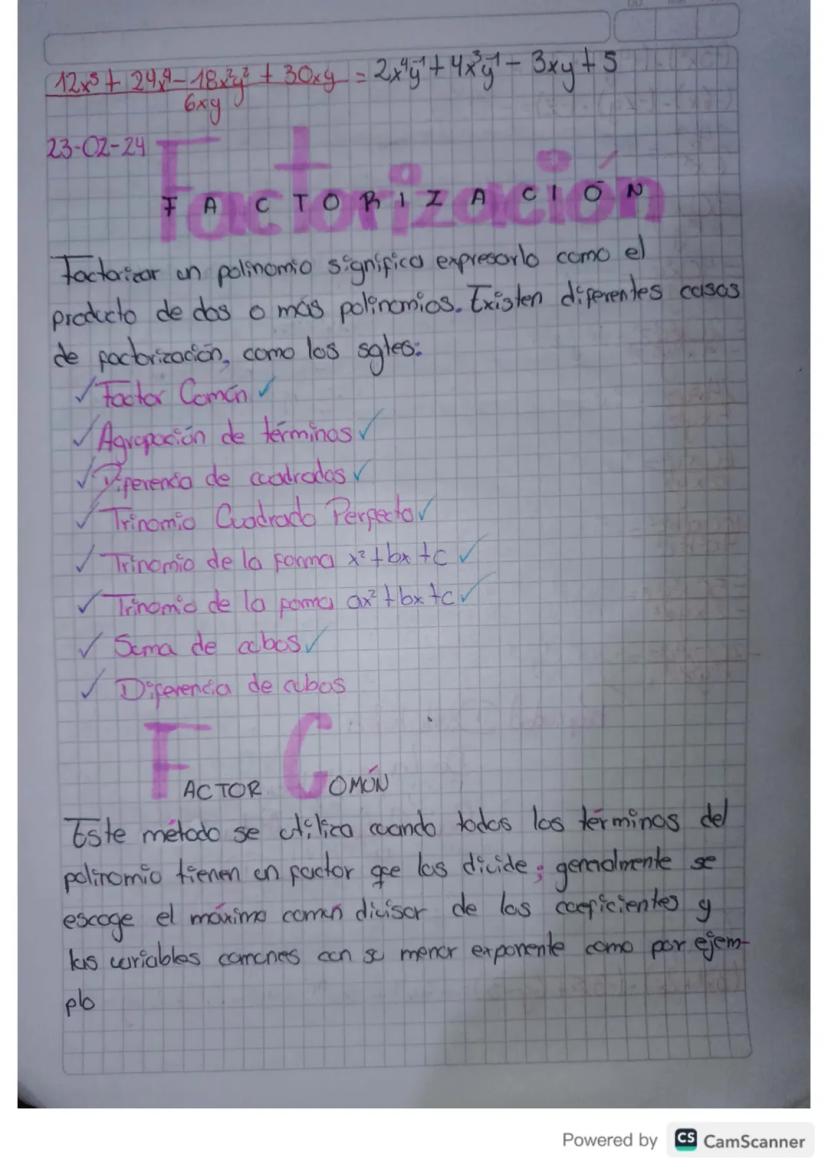 12x⁵ + 24x⁴ - 18x²y² + 30xy = 2x⁴y⁻¹ + 4x³y⁻¹ - 3xy + 5
6xy
23-02-24
Factorización
FACTORIZACIÓN
Factorizar un polinomio significa expresarlo como el
producto de dos o más polinomios. Existen diferentes casos
de factorización, como los sgtes:
✓ Factor Común ✓
✓ Agrupación de términos ✓
✓ Diferencia de cuadrados ✓
✓ Trinomio Cuadrado Perfecto ✓
✓ Trinomio de la forma x² + bx + c ✓
✓ Trinomio de la forma ax² + bx + c ✓
✓ Suma de cubos ✓
✓ Diferencia de cubos
FACTOR COMÚN
Este método se utiliza cuando todos los términos del
polinomio tienen un factor que los divide; generalmente se
escoge el máximo común divisor de los coeficientes y
las variables comunes con su menor exponente como por ejem-
plo
Powered by CS CamScanner